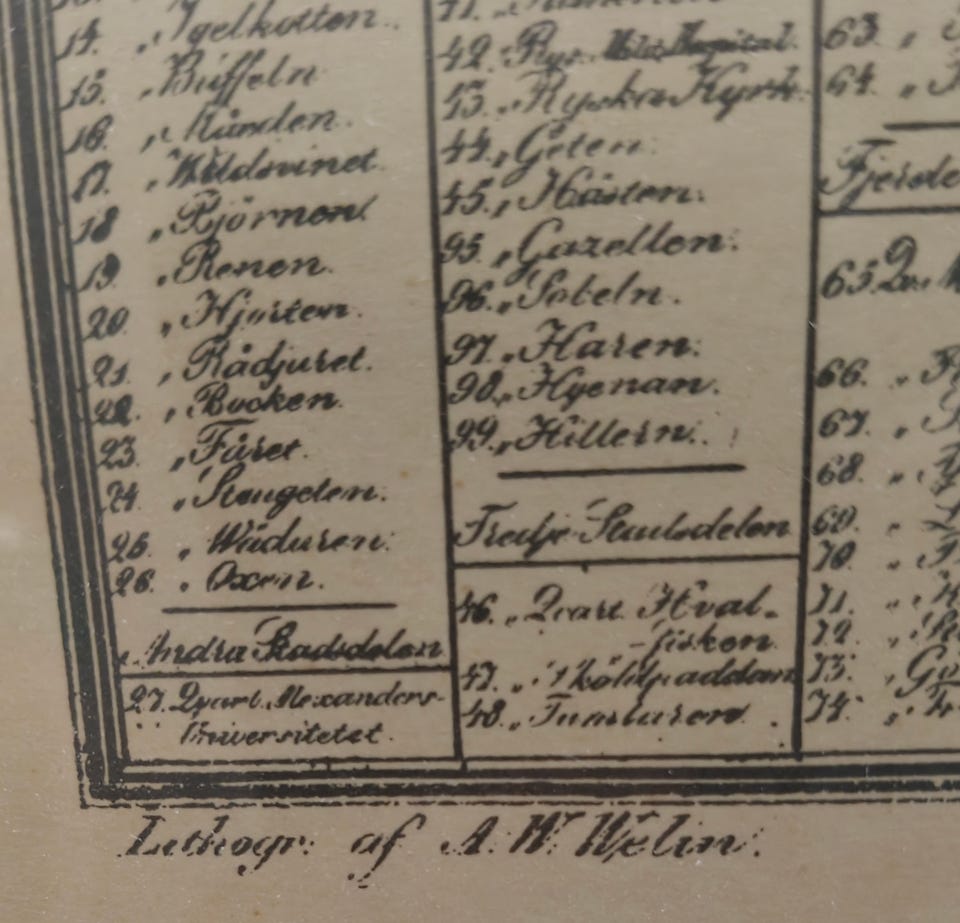 14. „ Igelkotten.
15. „ Büffeln
16. „ Mården.
17. „ Wildsvinet
18 „ Björnen.
19. „ Renen.
20. „ Hjorten.
21. „ Rådjuret.
22. „ Bocken.
23. „ Fåret.
24. „ Stengeten.
25. „ Wäduren.
26. „ Oxen.
Andra Stadsdelen
27. Qvart. Alexanders-
Universitetet.
42. Rys.
43. „ Ryska Kyrk.
44. „ Geten.
45. „ Hästen.
95. „ Gazellen.
96. „ Sobeln.
97. „ Haren.
98. „ Hyenan.
99. „ Hillern.
Tredje Stadsdelen
46. „ Qvart. Hval-
-fisken
47. „ Sköldpaddan
48. „ Tumlaren.
63. „
64. „
Fjerde
65. Qv.
66. „
67. „
68. „
69. „
70. „
71. „
72. „
73. „
74. „
Lithogr. af A. W. Welin.